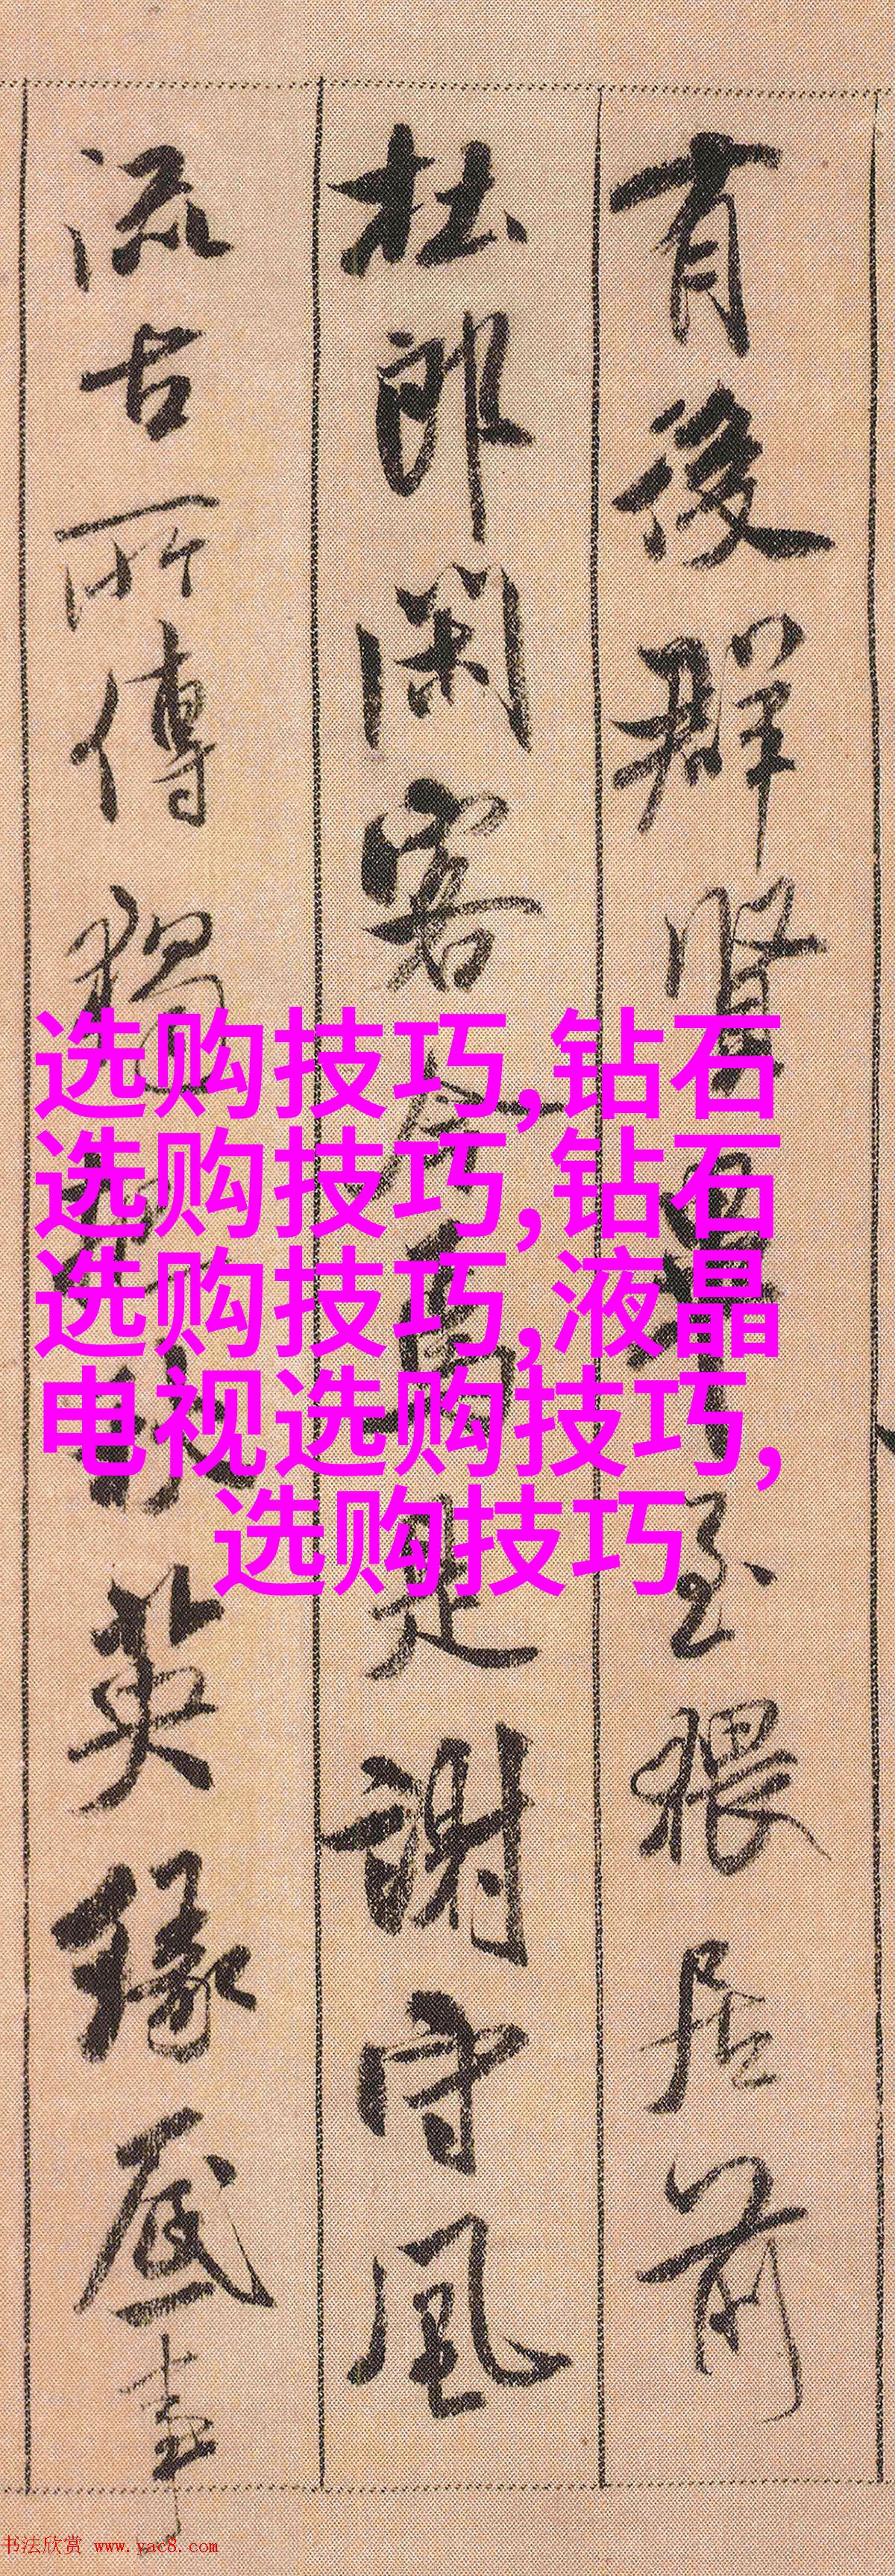 有後群賢畢至猥居前
杜郎閑客今焉是謝守風
流古所傳獨把秋英緣底事
选购技巧,钻石
选购技巧,钻石
选购技巧,液晶
电视选购技巧,
选购技巧
书法欣赏 www.yac8.com